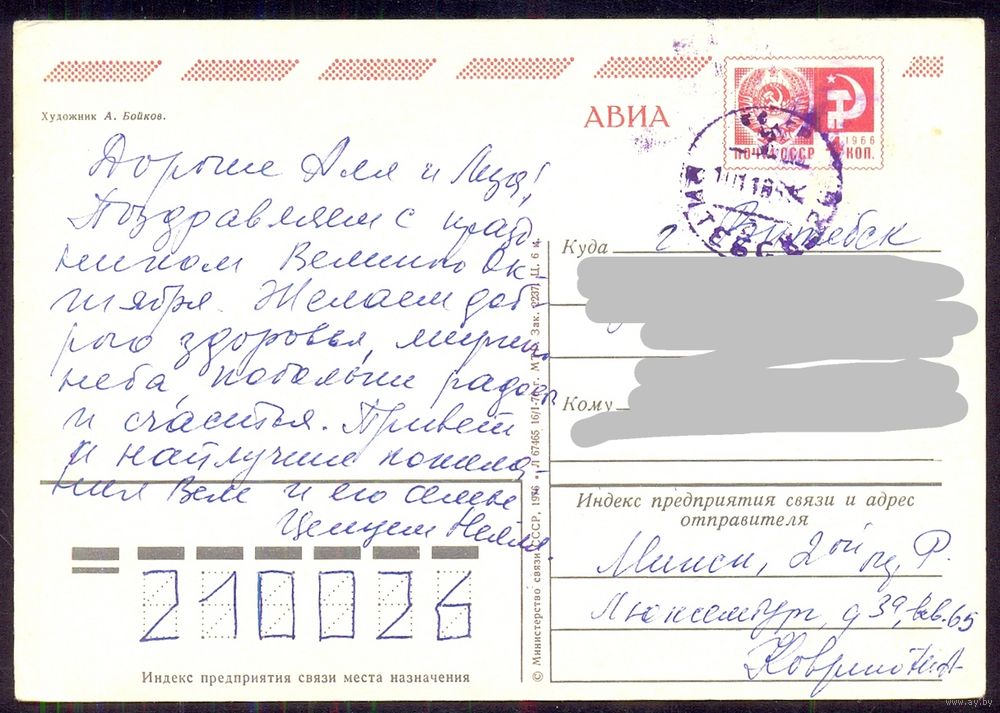 Художник А. Бойков.
АВИА
ПОЧТА СССР
1966
4 КОП.
ВИТЕБСК
Дорогие Аля и
Поздравляем с празд
ником Великого Ок-
тября. Желаем доб-
рого здоровья, мирного
неба, побольше радости
и счастья. Привет
и найлучшие пожела-
ния Веле и его семье
Целуем
Куда г Витебск
Кому
Индекс предприятия связи и адрес
отправителя
Минск, 2ой пер Р.
Люксембург, д 39, кв. 65
210026
Индекс предприятия связи места назначения
© Министерство связи СССР, 1976 Л 67465 16/I-76 г. МТ Зак. 2237 Ц. 6 к.
www.ay.by